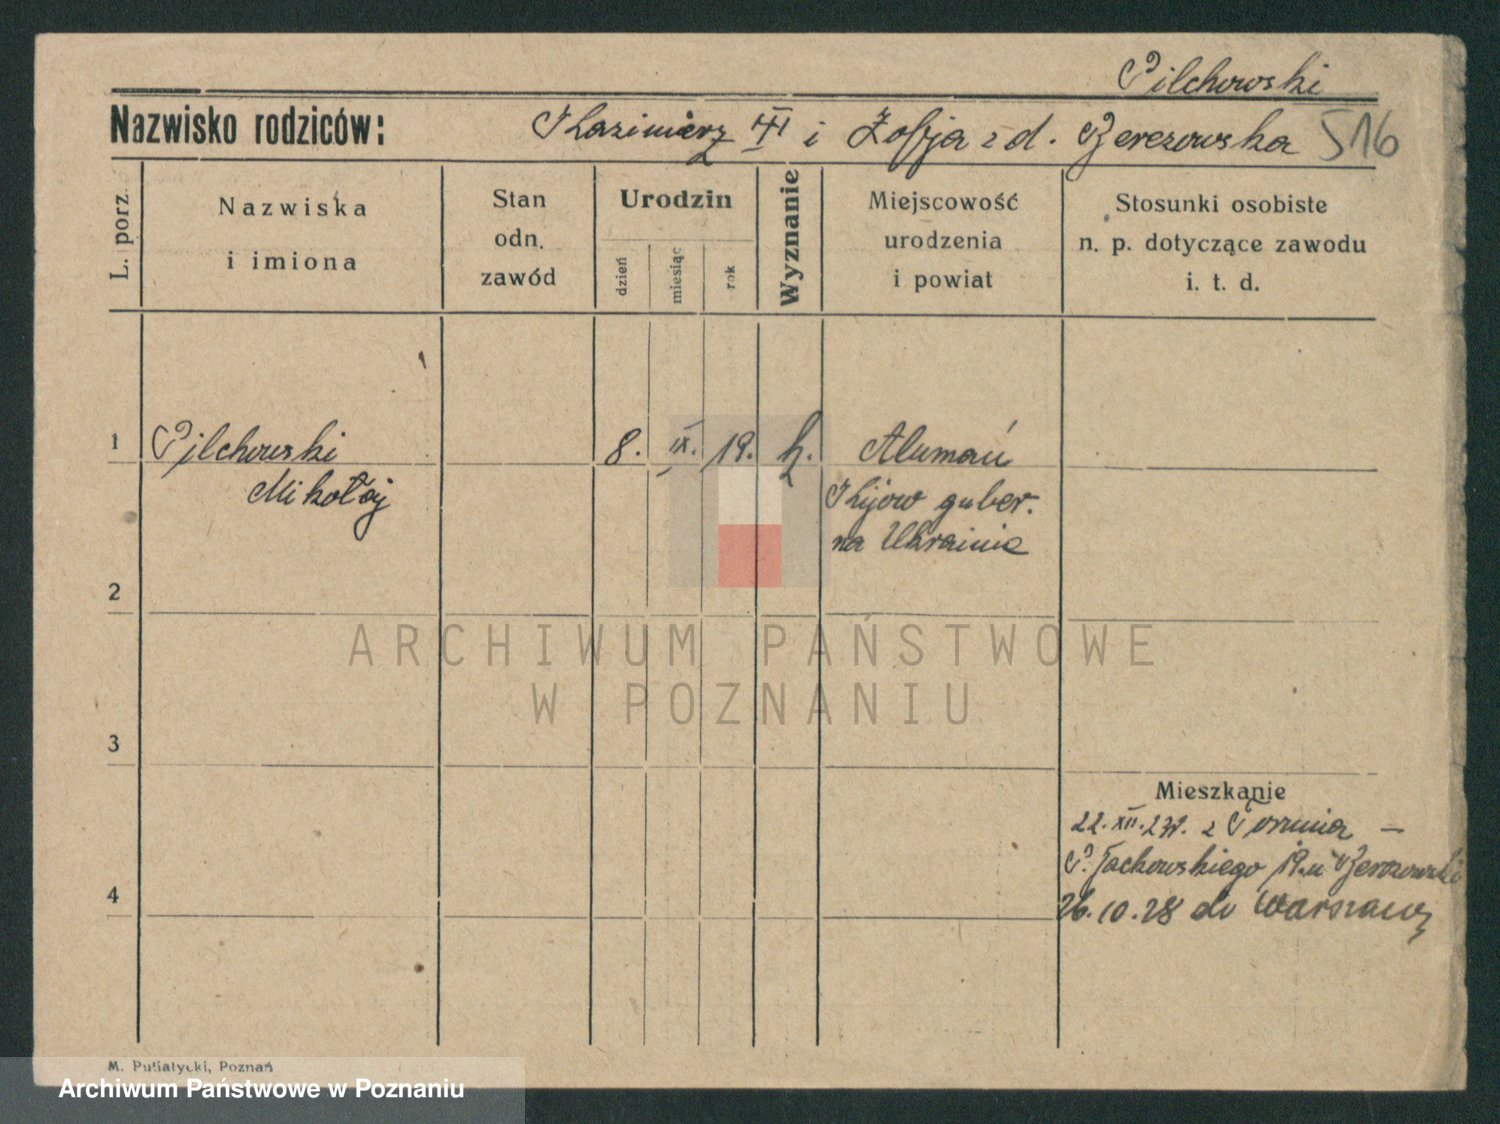 Pilchowski
Nazwisko rodziców: Kazimierz i Zofja z d. Berezowska 516
L. porz.
Nazwiska
i imiona
Stan
odn.
zawód
Urodzin
dzień
miesiąc
rok
Wyznanie
Miejscowość
urodzenia
i powiat
Stosunki osobiste
n. p. dotyczące zawodu
i. t. d.
1 Pilchowski 8. IX. 19. k. Alumań
Mikołaj Kijow guber.
na Ukrainie
2
ARCHIWUM PAŃSTWOWE
W POZNANIU
3
Mieszkanie
22. XII. 27. z Torunia —
4
26.10.28 do Warszawy
M. Putiatycki, Poznań
Archiwum Państwowe w Poznaniu